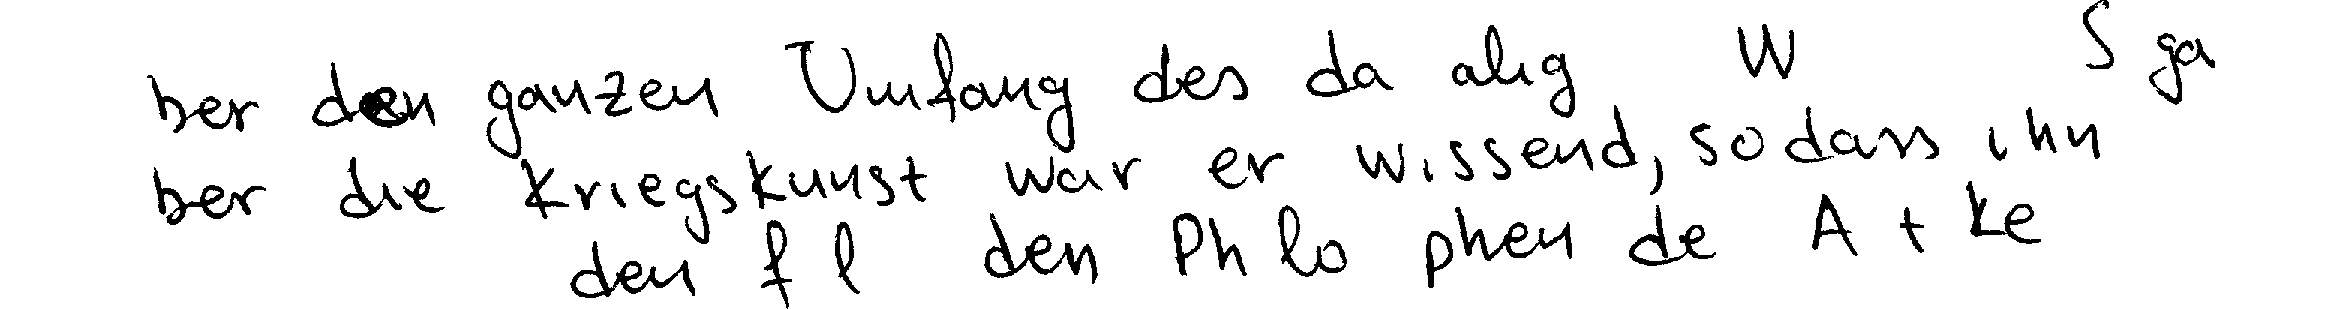 ber den ganzen Umfang des da alig W S ga
ber die Kriegskunst war er wissend, sodass ihn
den f l den Ph lo phen de A t ke